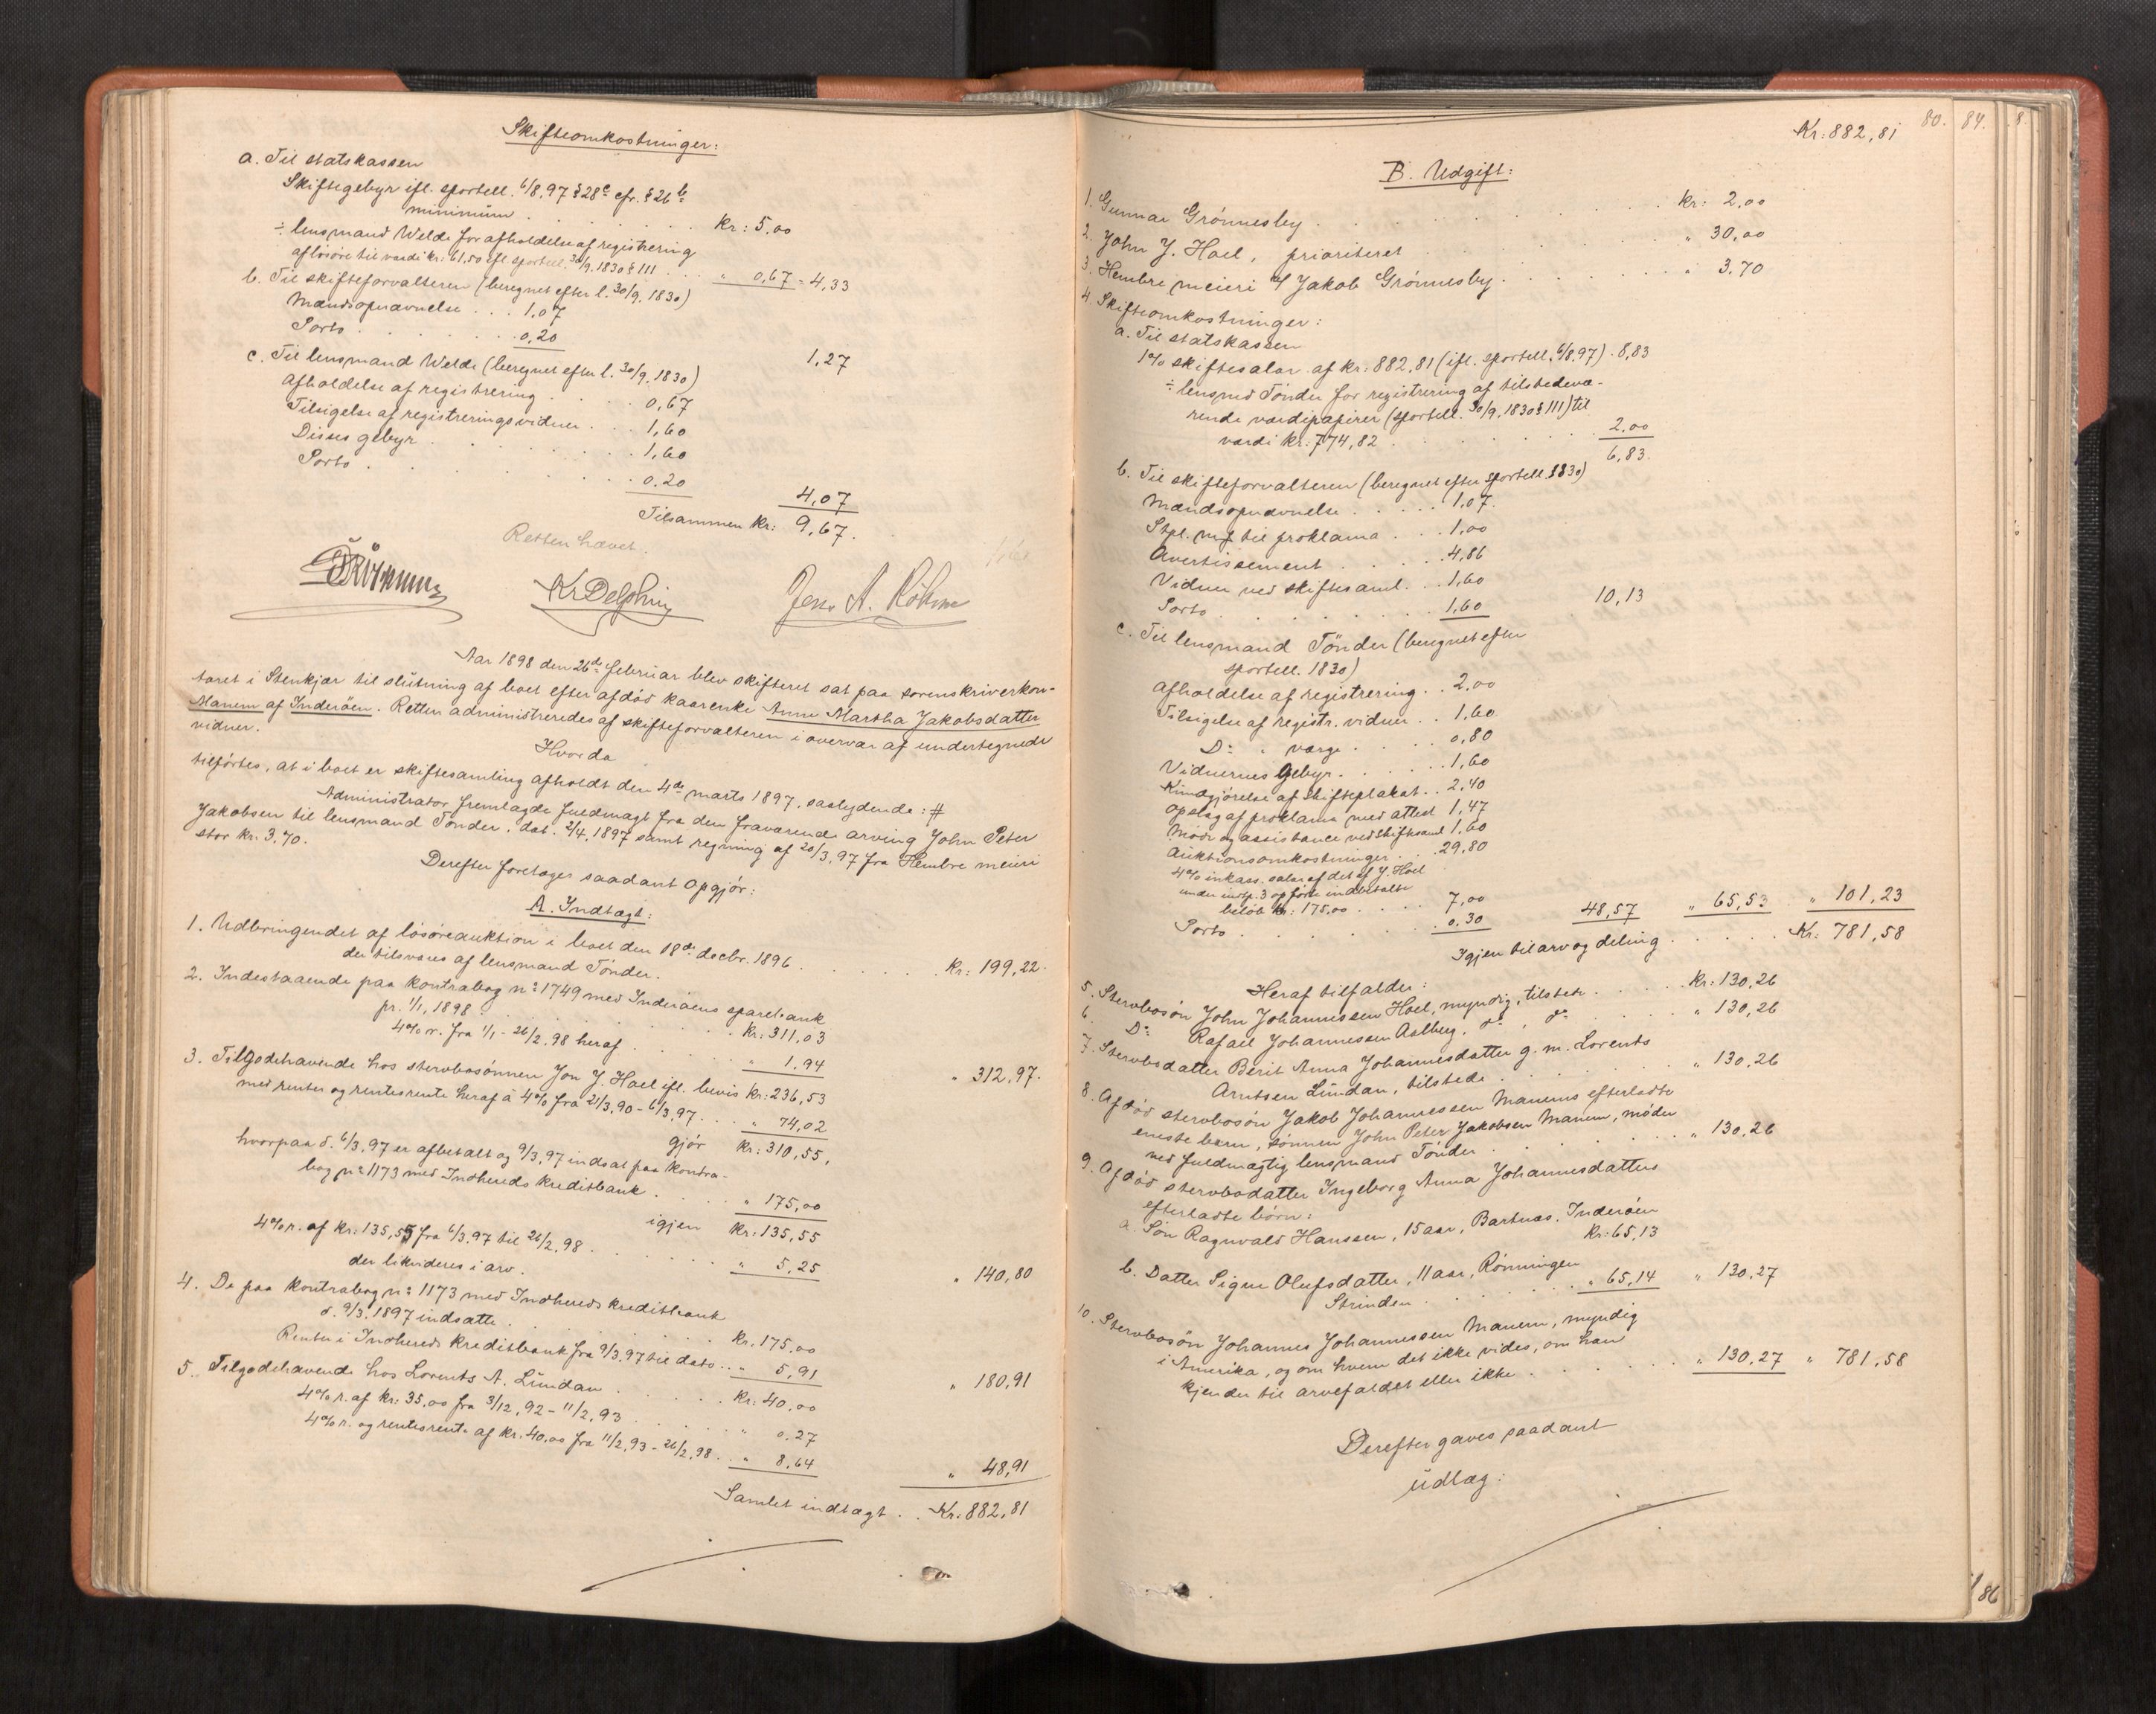 Skifteomkostninger:
a. Til statskassen
Skiftegebyr ifl. sportell. 6/8.97 § 28c cfr. § 26b
minimum . . . . Kr: 5,00
÷ lensmand Welde for afholdelse af registrering
af løsøre til værdi kr: 61,50 ifl. sportell. 30/9.1830 § 111 . . . " 0,67 = 4,33
b. Til skifteforvalteren (beregnet efter l. 30/9.1830)
Mændsopnævnelse . . . 1,07
Porto . . . . 0,20
1,27
c. Til lensmand Welde (beregnet efter l. 30/9.1830)
Afholdelse af registrering . . . 0,67
Tilsigelse af registreringsvidner . . . 1,60
Disses gebyr . . . . 1,60
Porto . . . . 0.20
4,07
Tilsammen Kr: 9,67.
Retten hævet.
KrDelphin
Jens A. Röhme
Aar 1898 den 26de februar blev skifteret sat paa sorenskriverkon-
toret i Stenkjær til slutning af boet efter afdød kaarenke Anne Martha Jakobsdatter
Manem af Inderøen. Retten administreredes af skifteforvalteren i overvær af undertegnede
vidner.
Hvorda
tilførtes, at i boet er skiftesamling afholdt den 4de marts 1897, saalydende: #
Administrator fremlagde fuldmagt fra den fraværende arving John Peter
Jakobsen til lensmand Tønder, dat. 2/4.1897 samt regning af 20/3.97 fra Hembre meieri
stor kr. 3,70.
Derefter foretoges saadant Opgjør:
A. Indtægt:
1. Udbringendet af løsøreauktion i boet den 18de decbr. 1896 . . . . Kr: 199,22.
der tilsvares af lensmand Tønder.
2. Indestaaende paa kontrabog no 1749 med Inderøens sparebank
pr. 1/1, 1898 . . . . Kr: 311,03
4% r. fra 1/1 - 26/2.98 heraf . . . . " 1.94
" 312,97.
3. Tilgodehavende hos stervbosønnen Jon J. Hoel ifl. bevis Kr: 236,53
med renter og rentesrente heraf à 4% fra 21/3.90 - 6/3.97 . . . " 74,02
gjør Kr: 310,55,
hvorpaa d. 6/3.97 er afbetalt og 9/3.97 indsat paa kontra-
bog no 1173 med Indhereds kreditbank . . . . " 175,00
igjen Kr: 135,55
4% r. af kr: 135,55 fra 6/3.97 til 26/2.98 . . . . " 5,25
der likvideres i arv.
" 140,80
4. De paa kontrabog no 1173 med Indhereds kreditbank
d. 9/3.1897 indsatte . . . . Kr. 175,00
Renter i Indhereds kreditbank fra 9/3.97 til dato . . " 5,91
" 180,91
5. Tilgodehavende hos Lorents A. Lundan . . . . Kr: 40,00
4% r. af kr: 35,00 fra 3/12,92 - 11/2,93 . . . . " 0,27
4% r. og rentesrente af kr. 40,00 fra 11/2.93 - 26/2.98 . . " 8,64
" 48,91
Samlet indtægt . . Kr: 882,81
80. 84. 8
Kr: 882,81
B. Udgift:
1. Gunnar Grønnesby . . . . kr: 2,00
2. John J. Hoel, prioriteret . . . . " 30,00
3. Hembre meieri v/ Jakob Grønnesby . . . . " 3.70
4. Skifteomkostninger:
a. Til statskassen
1% skiftesalær af kr: 882,81 (ifl. sportell. 6/8.97) . 8,83
÷ lensmd Tønder for registrering af tilstedevæ-
rende værdipapirer (sportell. 30/9.1830 § 111) til
værdi kr: 774,82 . . . . 2,00
6,83.
b. Til skifteforvalteren (beregnet efter sportell. 1830)
Mændsopnævnelse . . . . 1,07.
Stpl. m/ til proklama . . . 1,00
Avertissement . . . . 4,86
Vidner ved skiftesaml. . . 1,60
Porto . . . . 1,60
10,13
c. Til lensmand Tönder (beregnet efter
sportell. 1830)
Afholdelse af registrering . . 2,00
Tilsigelse af registr. vidner . . 1,60
Do " værge . . . . 0,80
Vidnernes Gebyr . . . . 1,60
Kundgjørelse af skifteplakat . . 2,40
Opslag af proklama med attest 1,47
Møde og assistance ved skiftsaml 1,60
Auktionsomkostninger . . . 29,80
4% inkass. salær af det af J. Hoel
under indt. 3 opførte indbetalte
beløb kr: 175,00 . . . . 7,00
Porto . . . . 0,30
48,57 " 65,53 " 101,23
Igjen til arv og deling . . . . Kr: 781,58
Heraf tilfalder:
5. Stervbosøn John Johannessen Hoel, myndig, tilstede . . . . Kr: 130,26
6. Do Rafael Johannessen Aalberg, do, do . . . . " 130,26
7. Stervbodatter Berit Anna Johannesdatter g. m. Lorents
Arntsen Lundan, tilstede . . . . " 130,26
8. Afdød stervbosøn Jakob Johannessen Manems efterladte
eneste barn, sønnen John Peter Jakobsen Manem, møder
ved fuldmægtig lensmand Tønder . . . . " 130,26
9. Afdød stervbodatter Ingeborg Anna Johannesdatters
efterladte børn:
a. Søn Ragnvald Hanssen, 15 aar, Bartnæs, Inderøen
Kr: 65,13
b. Datter Signe Olufsdatter, 11 aar, Rønningen
Strinden . . . . " 65,14 " 130,27
10. Stervbosøn Johannes Johannessen Manem, myndig
i Amerika, og om hvem det ikke vides, om han
kjender til arvefaldet eller ikke . . . . " 130,27 " 781,58
Derefter gaves saadant
udlæg:
86